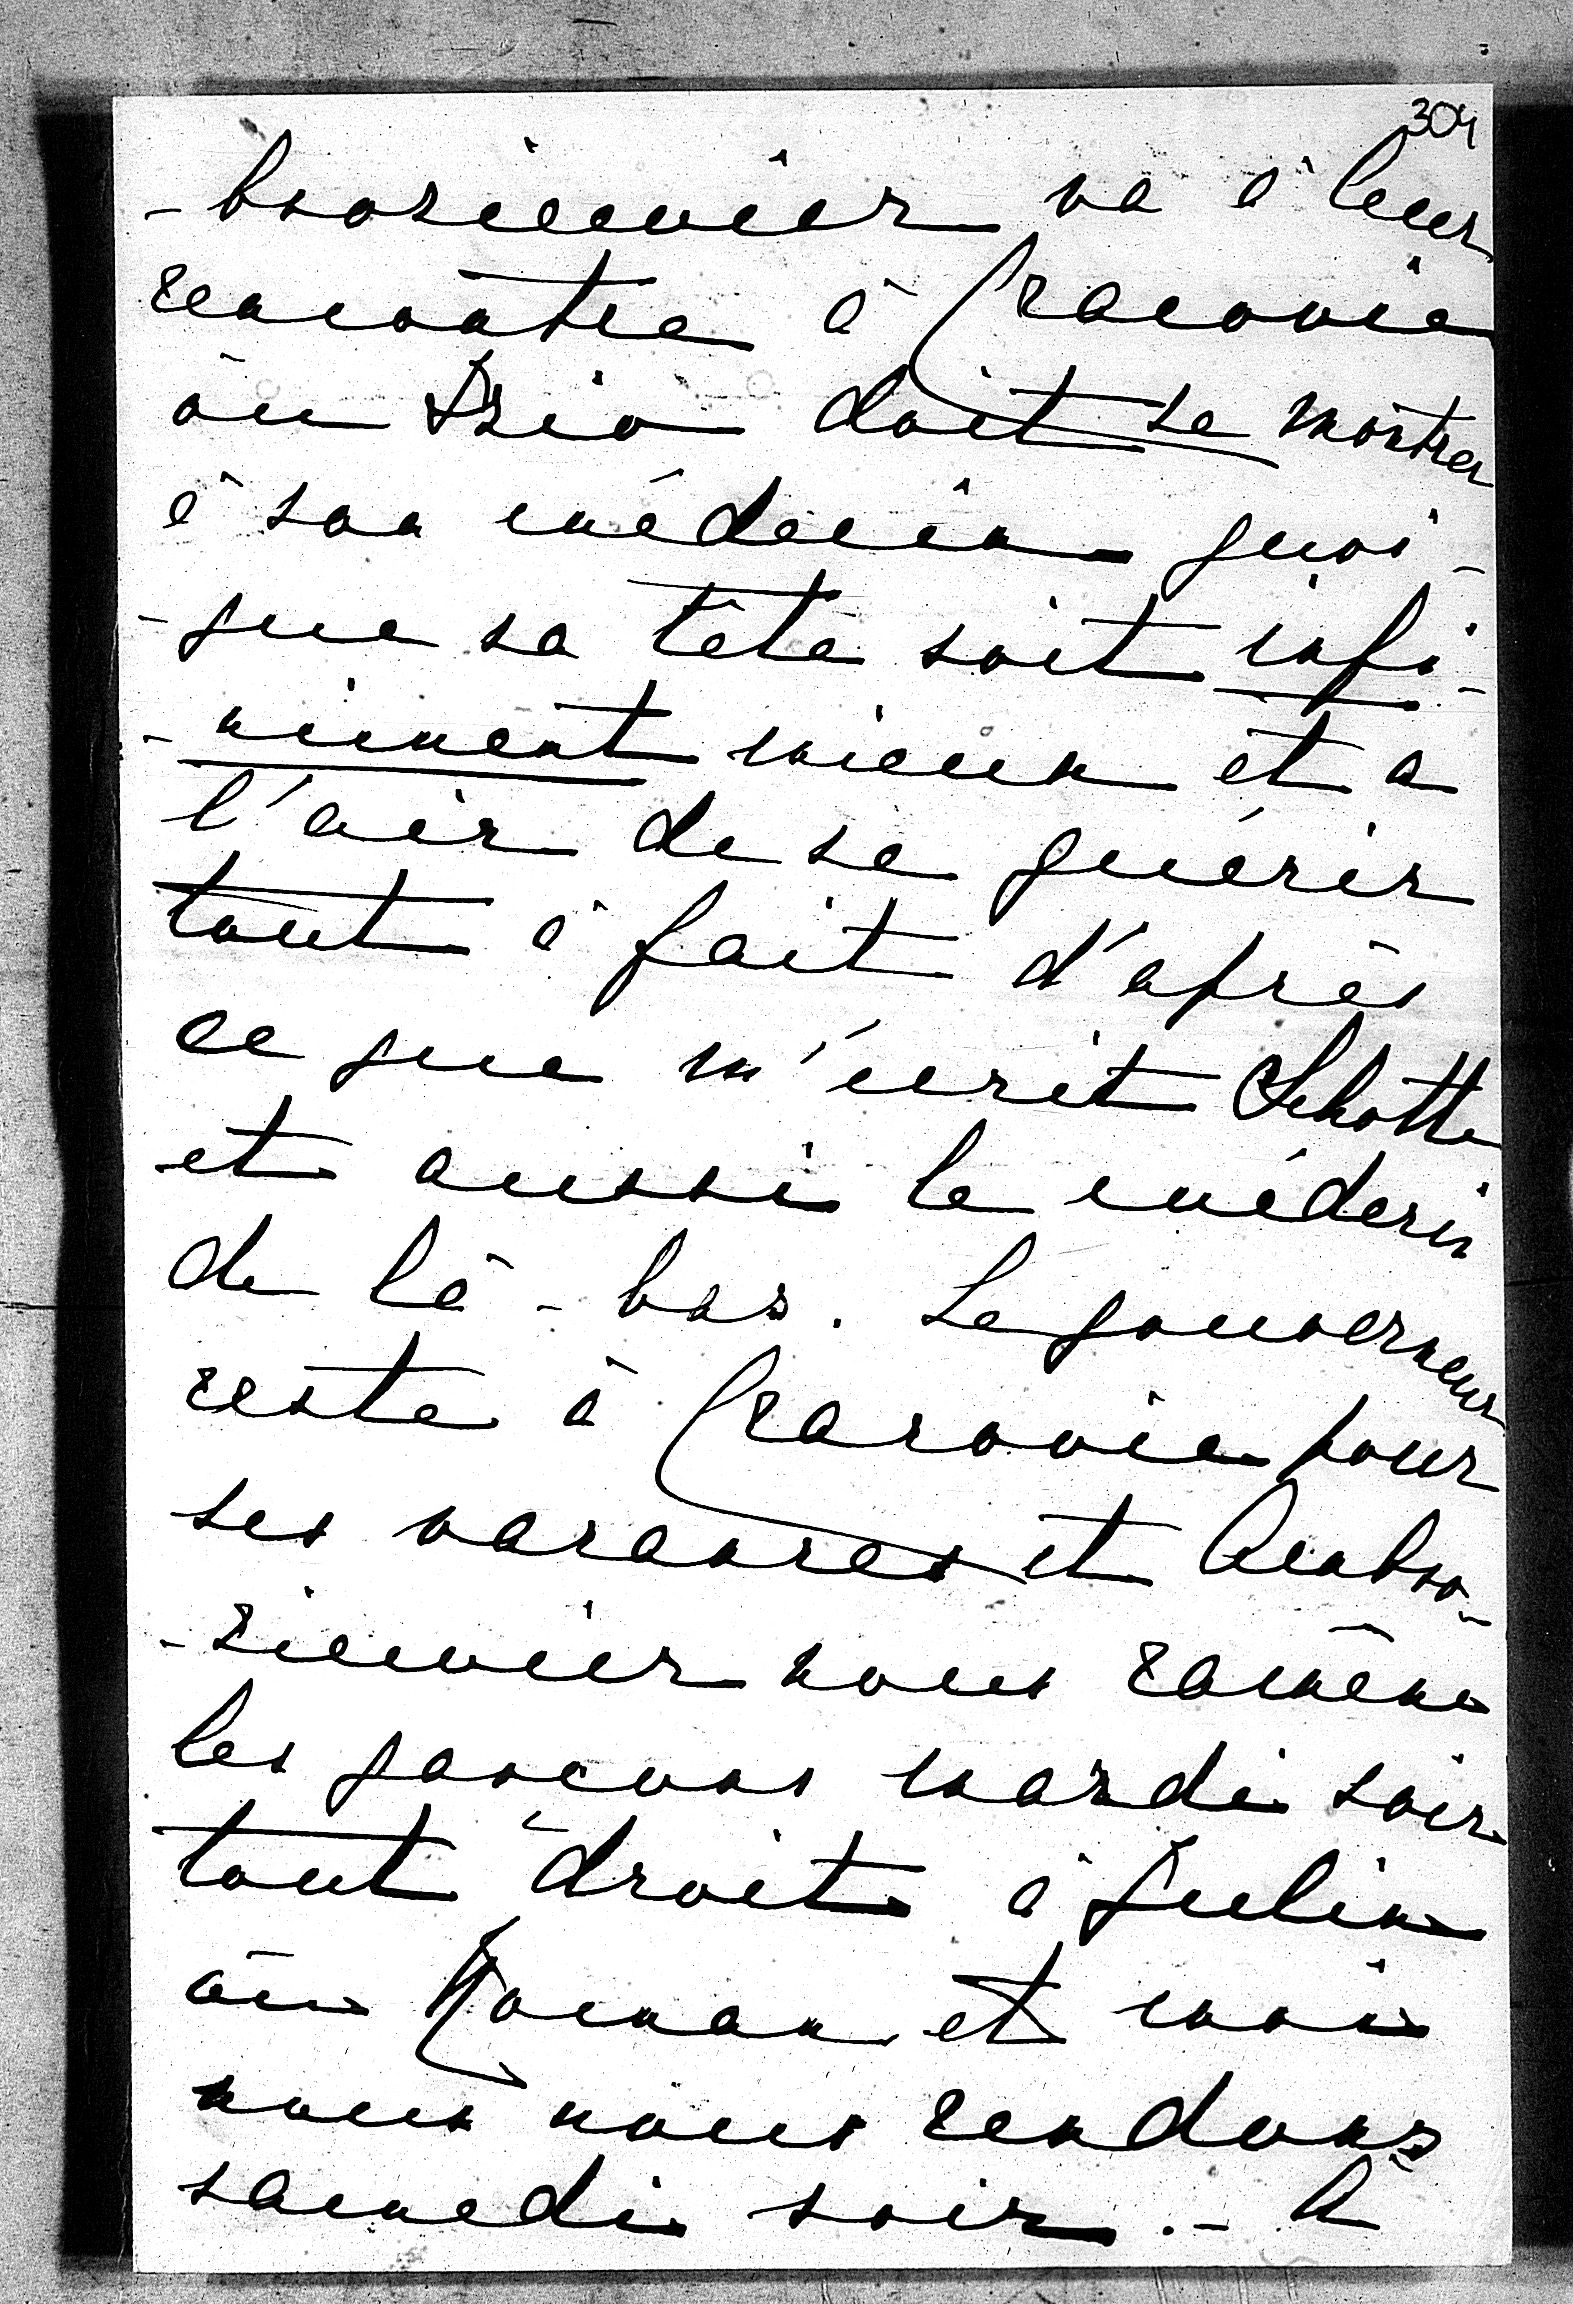 304
-brosiewicz va à leur
rencontre à Cracovie
où Isio doit se montrer
à son médecin quoi-
-que sa tête soit infi-
-niment mieux et a
l'air de se guérir
tout à fait d'après
ce que m'écrit Schotte
et aussi le médecin
de là-bas. Le gouverneur
reste à Cracovie pour
ses vacances et Ambro-
-siewicz nous ramène
les garçons mardi soir
tout droit à Julin
où Roman et moi
nous nous rendons
samedi soir. - A